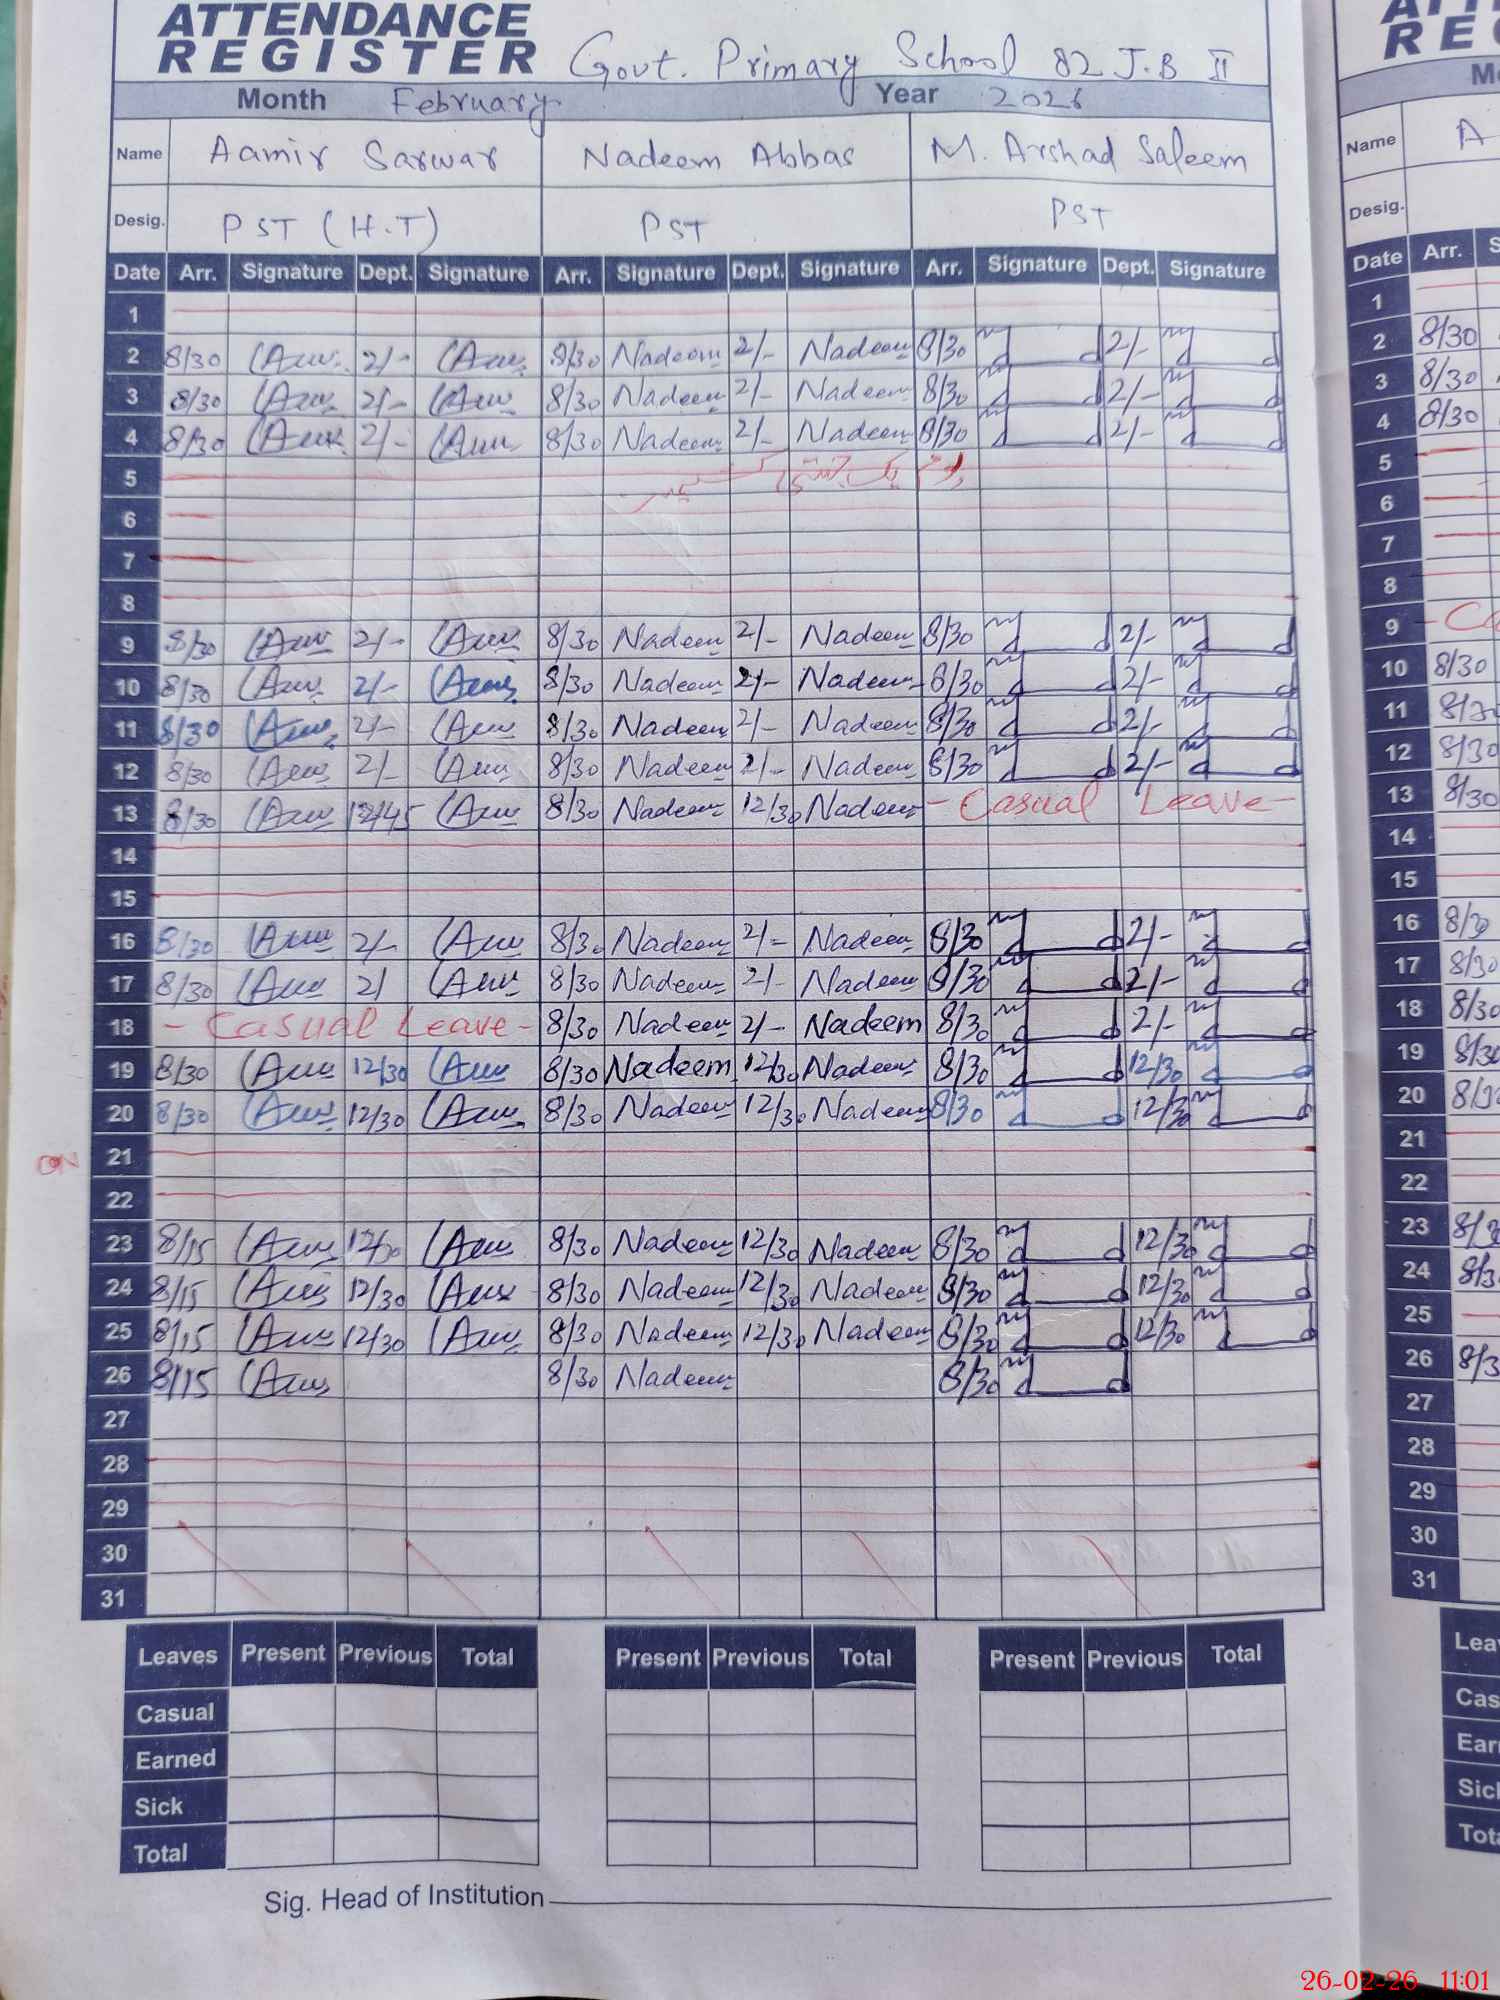 ATTENDANCE
REGISTER Govt. Primary School 82 J.B II
Month February Year 2026
Name Aamir Sarwar Nadeem Abbas M. Arshad Saleem
Desig. PST (H.T) PST PST
Date Arr. Signature Dept. Signature Arr. Signature Dept. Signature Arr. Signature Dept. Signature
1
2 8/30 2/- 8/30 Nadeem 2/- Nadeem 8/30 2/-
3 8/30 2/- 8/30 Nadeem 2/- Nadeem 8/30 2/-
4 8/30 2/- 8/30 Nadeem 2/- Nadeem 8/30 2/-
5 یوم یک جہتی کشمیر
6
7
8
9 8/30 2/- 8/30 Nadeem 2/- Nadeem 8/30 2/-
10 8/30 2/- 8/30 Nadeem 2/- Nadeem 8/30 2/-
11 8/30 2/- 8/30 Nadeem 2/- Nadeem 8/30 2/-
12 8/30 2/- 8/30 Nadeem 2/- Nadeem 8/30 2/-
13 8/30 12/45 8/30 Nadeem 12/30 Nadeem - Casual Leave -
14
15
16 8/30 2/- 8/30 Nadeem 2/- Nadeem 8/30 2/-
17 8/30 2/ 8/30 Nadeem 2/- Nadeem 8/30 2/-
18 - Casual Leave - 8/30 Nadeem 2/- Nadeem 8/30 2/-
19 8/30 12/30 8/30 Nadeem 12/30 Nadeem 8/30 12/30
20 8/30 12/30 8/30 Nadeem 12/30 Nadeem 8/30 12/30
21
22
23 8/15 12/30 8/30 Nadeem 12/30 Nadeem 8/30 12/30
24 8/15 12/30 8/30 Nadeem 12/30 Nadeem 8/30 12/30
25 8/15 12/30 8/30 Nadeem 12/30 Nadeem 8/30 12/30
26 8/15 8/30 Nadeem 8/30
27
28
29
30
31
Leaves Present Previous Total Present Previous Total Present Previous Total
Casual
Earned
Sick
Total
Sig. Head of Institution
Name A
Desig.
Date Arr.
1
2 8/30
3 8/30
4 8/30
5
6
7
8
9
10 8/30
11 8/30
12 8/30
13 8/30
14
15
16 8/30
17 8/30
18 8/30
19 8/30
20 8/30
21
22
23 8/3
24 8/3
25
26 8/3
27
28
29
30
31
26-02-26 11:01